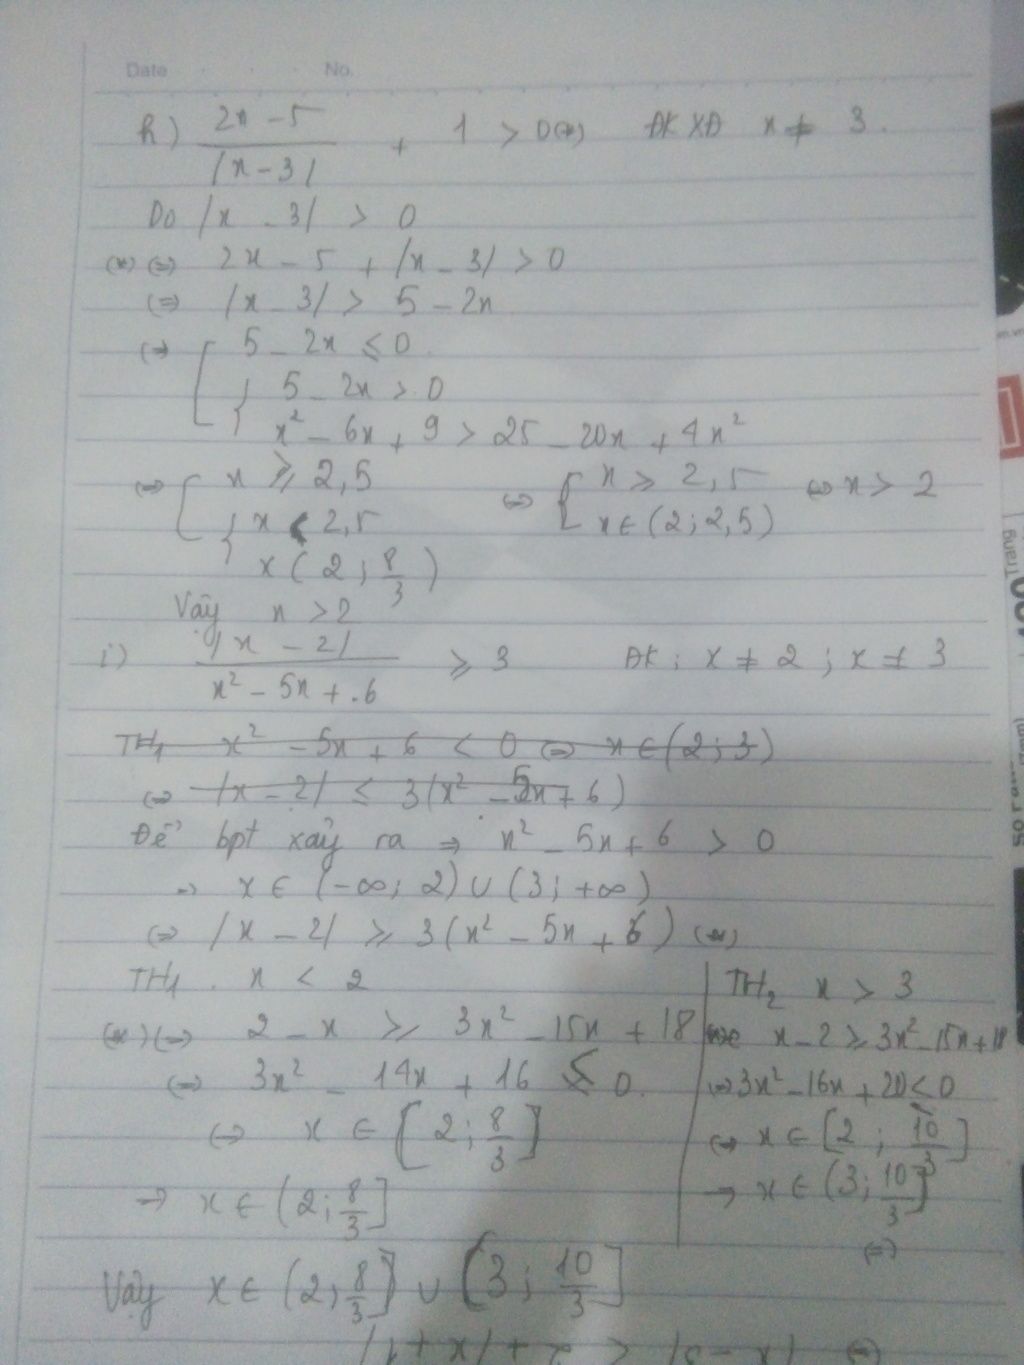 Date No.
h) (2x - 5)/|x - 3| + 1 > 0 (*) ĐKXĐ x ≠ 3.
Do |x - 3| > 0
(*) (=) 2x - 5 + |x - 3| > 0
(=) |x - 3| > 5 - 2x
(=) [ 5 - 2x ≤ 0
{ 5 - 2x > 0
x² - 6x + 9 > 25 - 20x + 4x²
(=) [ x ≥ 2,5 (=) [ x ≥ 2,5 (=) x > 2
{ x < 2,5 x ∈ (2; 2,5)
x (2; 8/3)
Vậy x > 2
i) |x - 2|/(x² - 5x + .6) ≥ 3 ĐK: x ≠ 2; x ≠ 3
TH1 x² - 5x + 6 < 0 (=) x ∈ (2; 3)
(=) |x - 2| ≤ 3(x² - 5x + 6)
Để bpt xảy ra => x² - 5x + 6 > 0
=> x ∈ (-∞; 2) ∪ (3; +∞)
(=) |x - 2| ≥ 3(x² - 5x + 6) (*)
TH1. x < 2
(*) (=) 2 - x ≥ 3x² - 15x + 18
(=) 3x² - 14x + 16 ≤ 0.
(=) x ∈ [2; 8/3]
=> x ∈ (2; 8/3]
TH2 x > 3
x - 2 ≥ 3x² - 15x + 18
(=) 3x² - 16x + 20 ≤ 0
(=) x ∈ [2; 10/3]
=> x ∈ (3; 10/3]
(=)
Vậy x ∈ (2; 8/3] ∪ (3; 10/3]